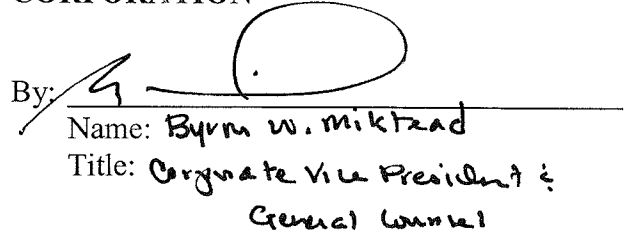 CORPORATION
By:
Name: Byrm W. Miktead
Title: Corporate Vice President &
General Counsel